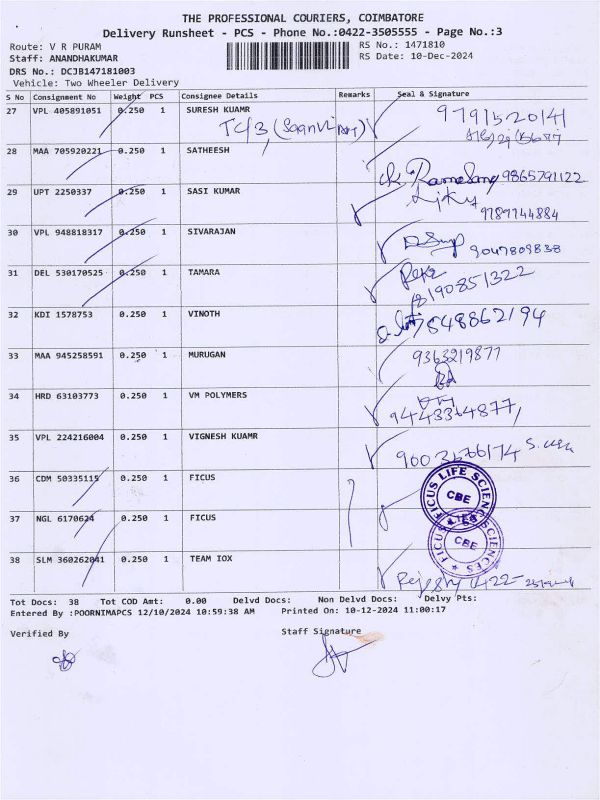 THE PROFESSIONAL COURIERS, COIMBATORE
Delivery Runsheet - PCS - Phone No.:0422-3505555 - Page No.:3
Route: V R PURAM RS No.: 1471810
Staff: ANANDHAKUMAR RS Date: 10-Dec-2024
DRS No.: DCJB147181003
Vehicle: Two Wheeler Delivery
S No Consignment No Weight PCS Consignee Details Remarks Seal & Signature
27 VPL 405891051 0.250 1 SURESH KUAMR 9791520141
TC/3
28 MAA 705920221 0.250 1 SATHEESH
9865791122
29 UPT 2250337 0.250 1 SASI KUMAR
9789744884
30 VPL 948818317 0.250 1 SIVARAJAN
9047809838
31 DEL 530170525 0.250 1 TAMARA
8190851322
32 KDI 1578753 0.250 1 VINOTH 7548862194
33 MAA 945258591 0.250 1 MURUGAN 9363219877
34 HRD 63103773 0.250 1 VM POLYMERS
9443364877,
35 VPL 224216004 0.250 1 VIGNESH KUAMR
36 CDM 50335115 0.250 1 FICUS
FICUS LIFE SCIENCES CBE
37 NGL 6170624 0.250 1 FICUS
FICUS LIFE SCIENCES CBE
38 SLM 360262041 0.250 1 TEAM IOX
0422-
Tot Docs: 38 Tot COD Amt: 0.00 Delvd Docs: Non Delvd Docs: Delvy Pts:
Entered By :POORNIMAPCS 12/10/2024 10:59:38 AM Printed On: 10-12-2024 11:00:17
Verified By Staff Signature